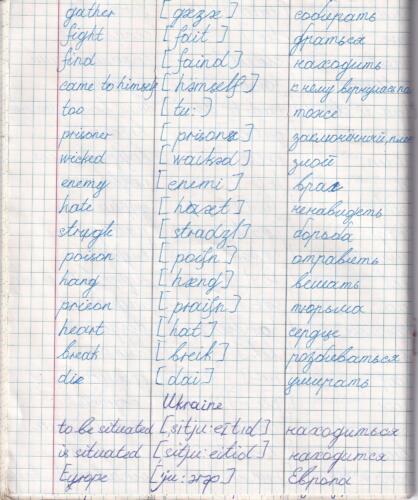 gather [gæзæ] собирать
fight [fait] драться
find [faind] находить
came to himself [həmself] к нему вернулась па
too [tu:] тоже
prisoner [prisonæ] заключённый, плен
wicked [waikəd] злой
enemy [enemi] враг
hate [haæt] ненавидеть
strugle [stradzl] борьба
poison [poiſn] отравить
hang [hæng] вешать
prieon [praiſn] тюрьма
heart [hat] сердце
break [breik] разбиваться
die [dai] умирать
Ukraine
to be situated [sitju:eitid] находиться
is situated [sitju:eitid] находится
Europe [ju:əгəp] Европа